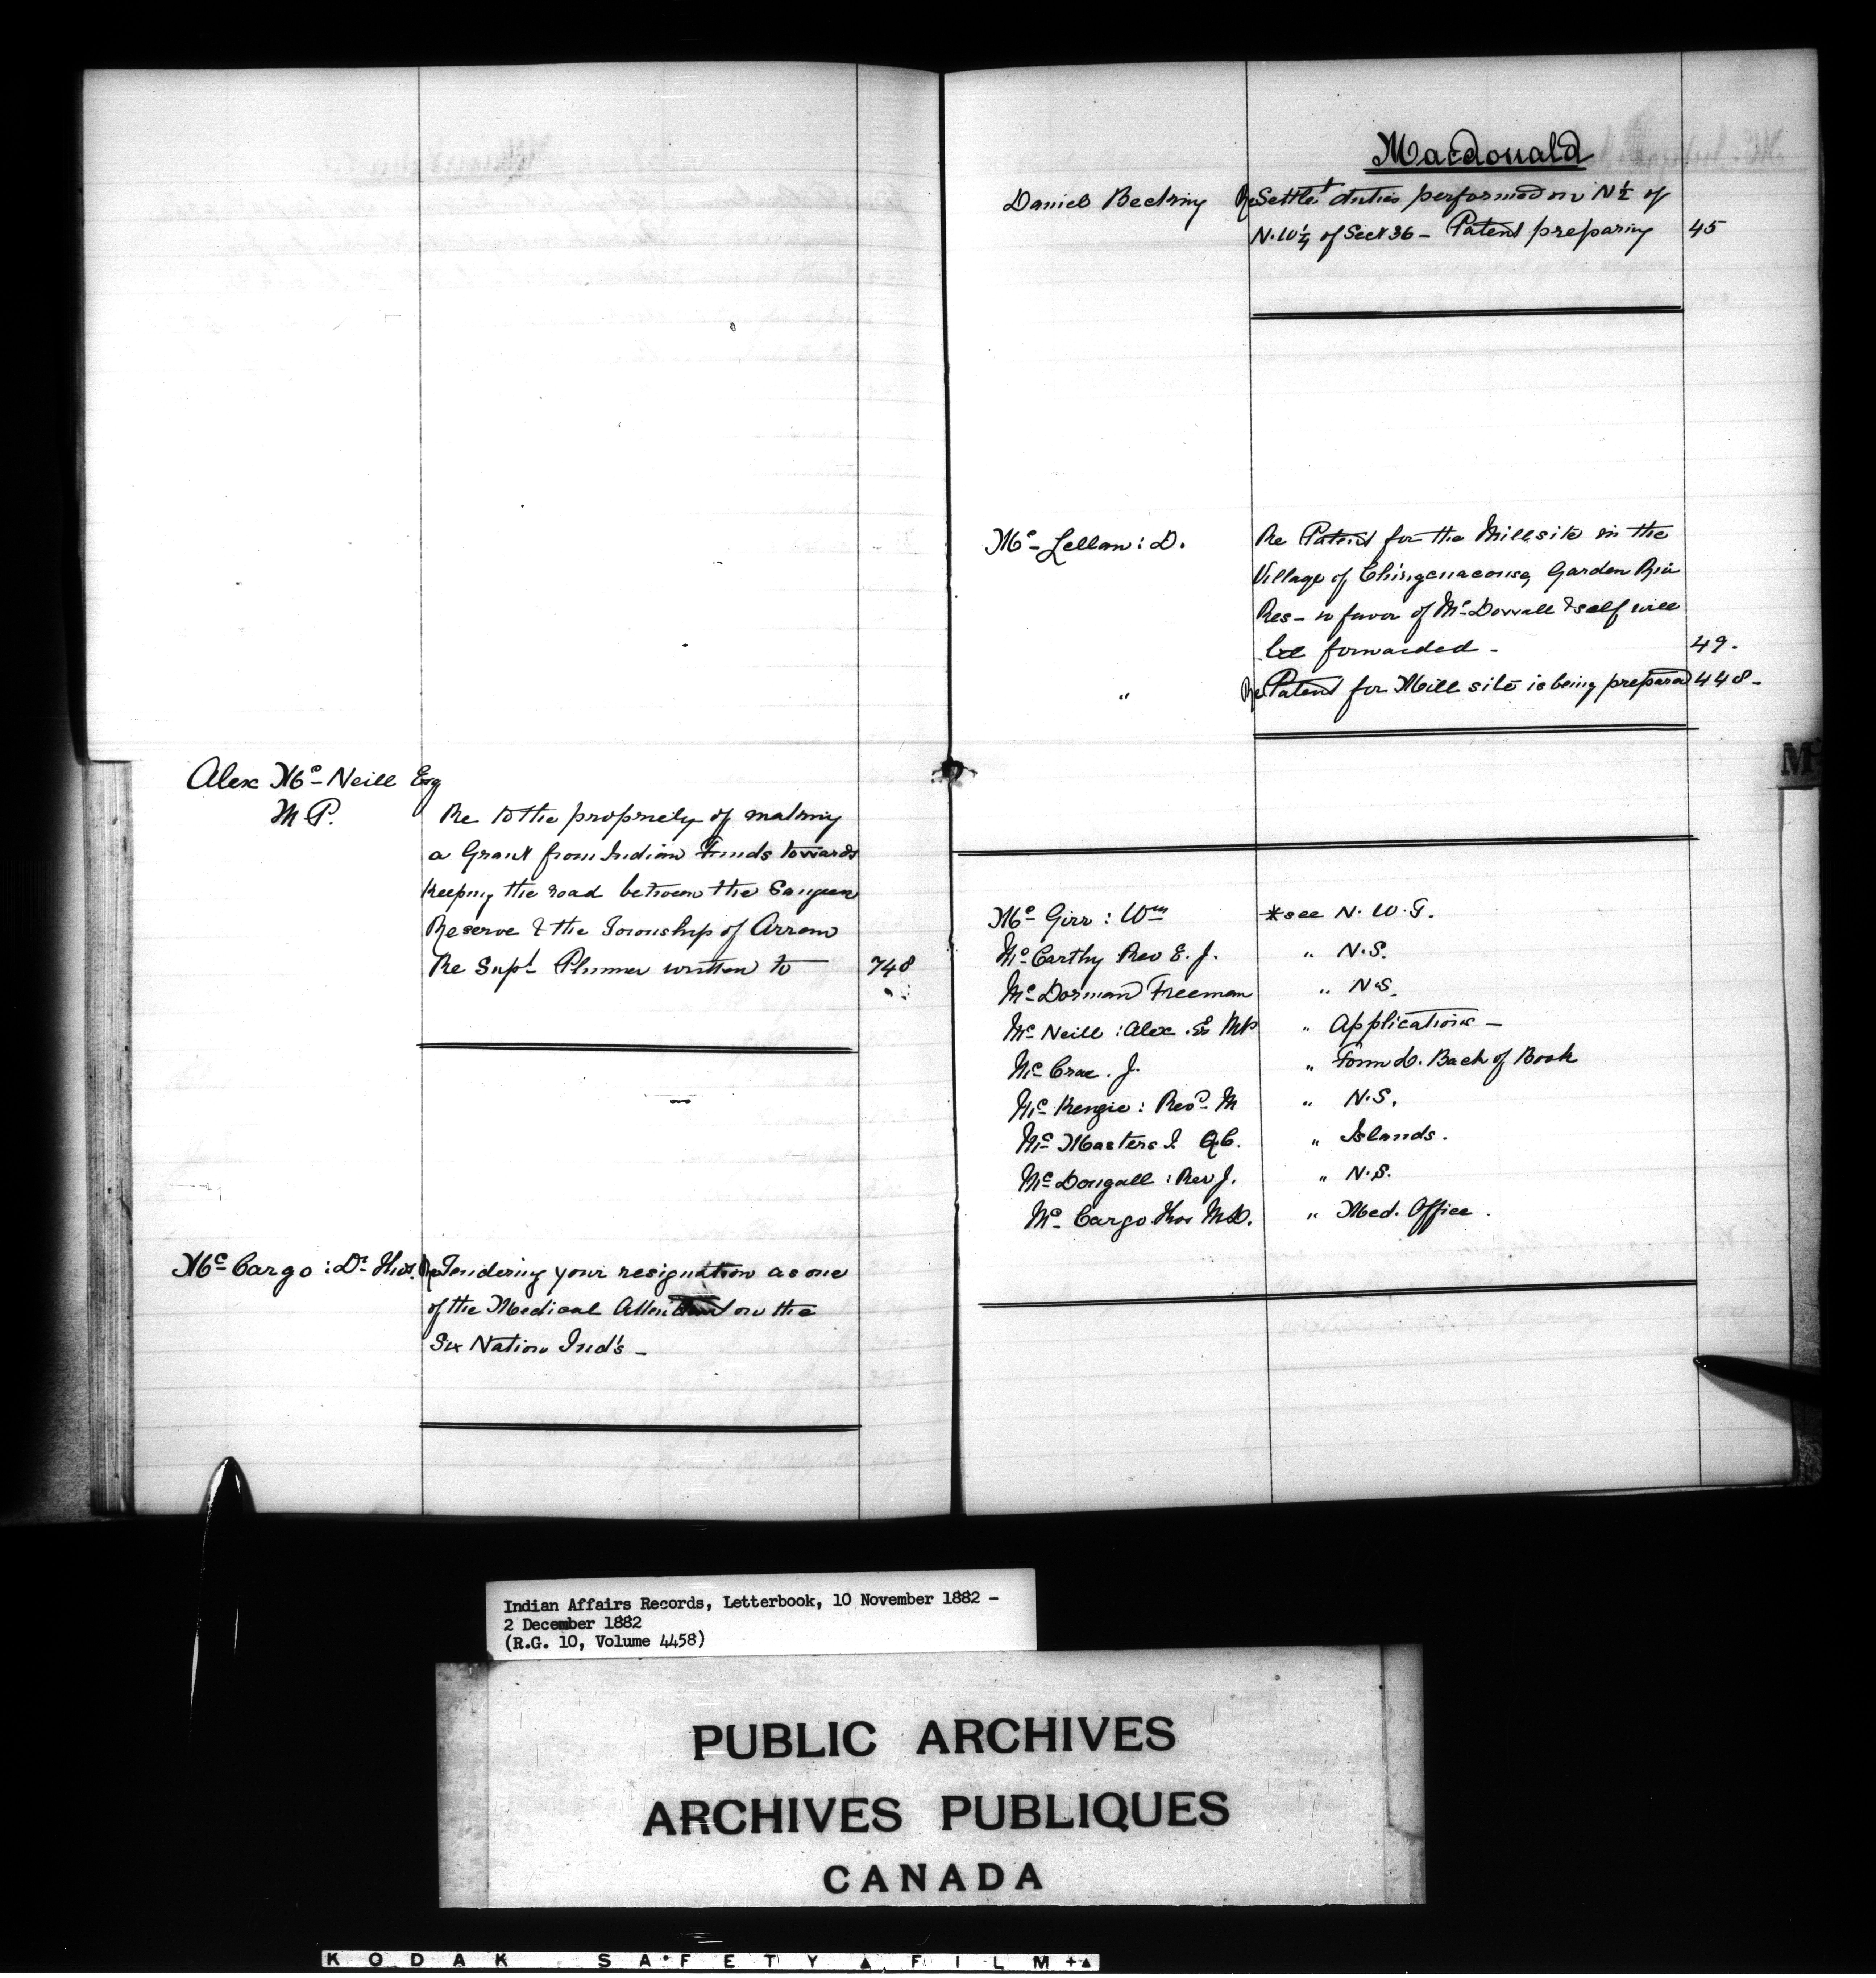 Alex Mc Neill Esq
M P.
Re to the propriety of making
a Grant from Indian Funds towards
Keeping the road between the Saugeen
Reserve & the Township of Arran
Re Supt Plummer written to 748
Mc Cargo : Dr Thos. Re Tendering your resignation as one
of the Medical on the
Six Nation Ind's –
Macdonald
Daniel Re Settlet duties performed on N½ of
N.W¼ of Sect 36 – Patent preparing 45
Mc Lellan : D. Re Patent for the Millsite in the
Village of Garden
Res – in favor of Mc & self will
be forwarded – 49.
" Re Patent for Mill site is being prepared 448 –
Mc Girr : Wm *see N. W. G.
Mc Carthy Rev E. J. " N.S.
Mc Dorman Freeman " N.S.
Mc Neill : Alex Es MP " Applications –
Mc Crae . J. " Form D. Back of Book
Mc Kenzie : Revd M " N.S.
Mc Masters J QC. " Islands.
Mc Dougall : Rev J. " N.S.
Mc Cargo Thos M.D. " Med. Office .
Mc
Indian Affairs Records, Letterbook, 10 November 1882 –
2 December 1882
(R.G. 10, Volume 4458)
PUBLIC ARCHIVES
ARCHIVES PUBLIQUES
CANADA
KODAK SAFETY FILM